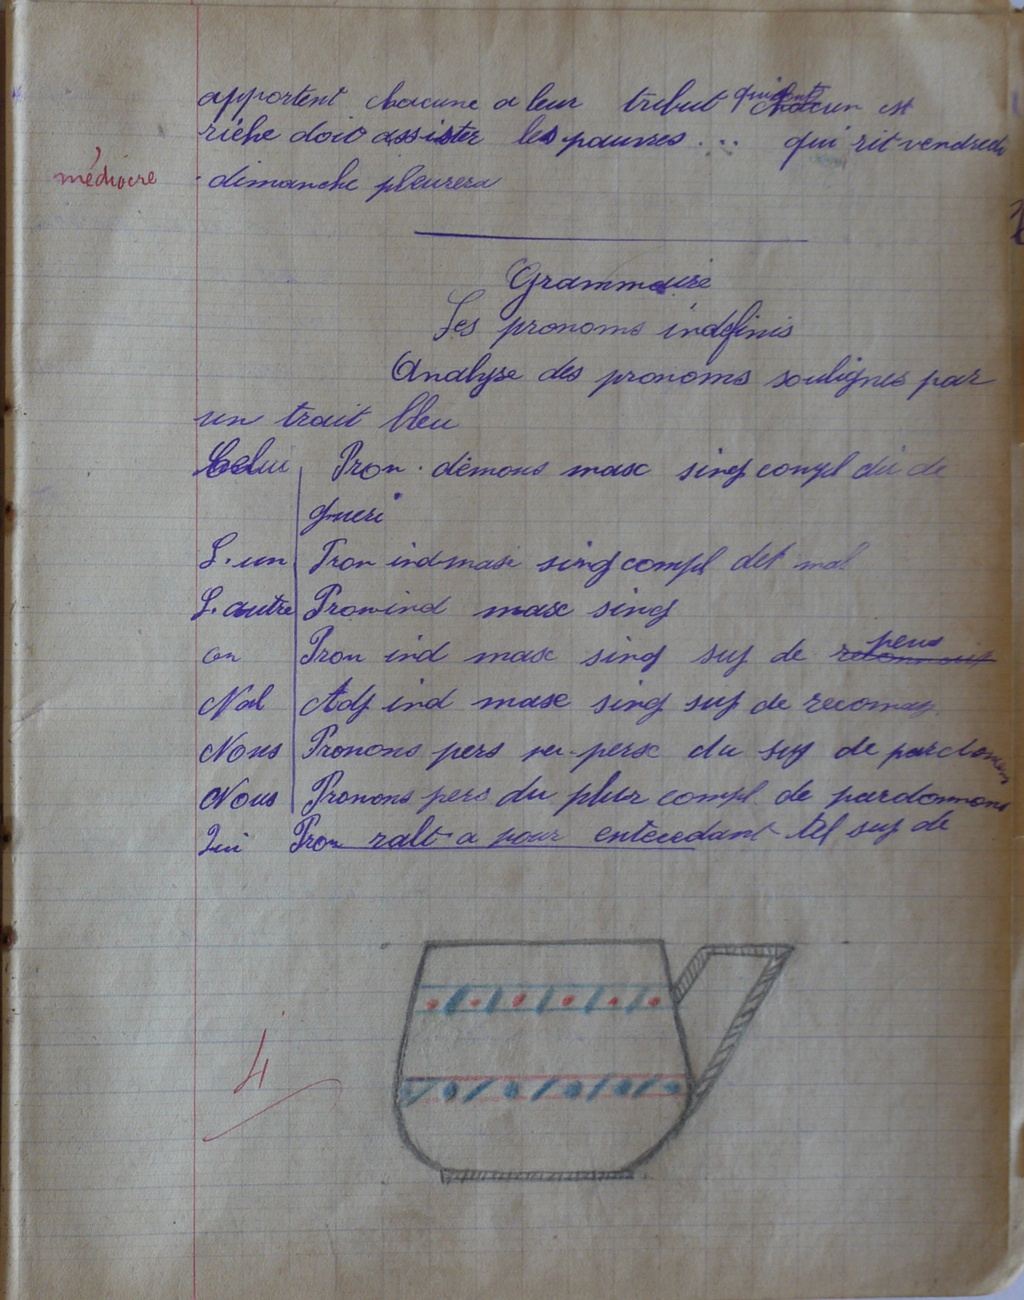 apportent chacune a leur tribut quiconque est
riche doit assister les pauvres... qui rit vendredi
médiocre
dimanche pleurera
Grammaire
Les pronoms indéfinis
Analyse des pronoms soulignes par
un trait bleu
Celui Pron. démons masc sing compl dir de
gueri
L'un Pron ind masc sing compl det mal
L'autre Pron ind masc sing
on Pron ind masc sing suj de peus
Nul Adj ind masc sing suj de
Nous Pronons pers du suj de pardonnons
Nous Pronons pers du plur compl de pardonnons
Qui Pron ralt a pour entécedant tel suj de
4